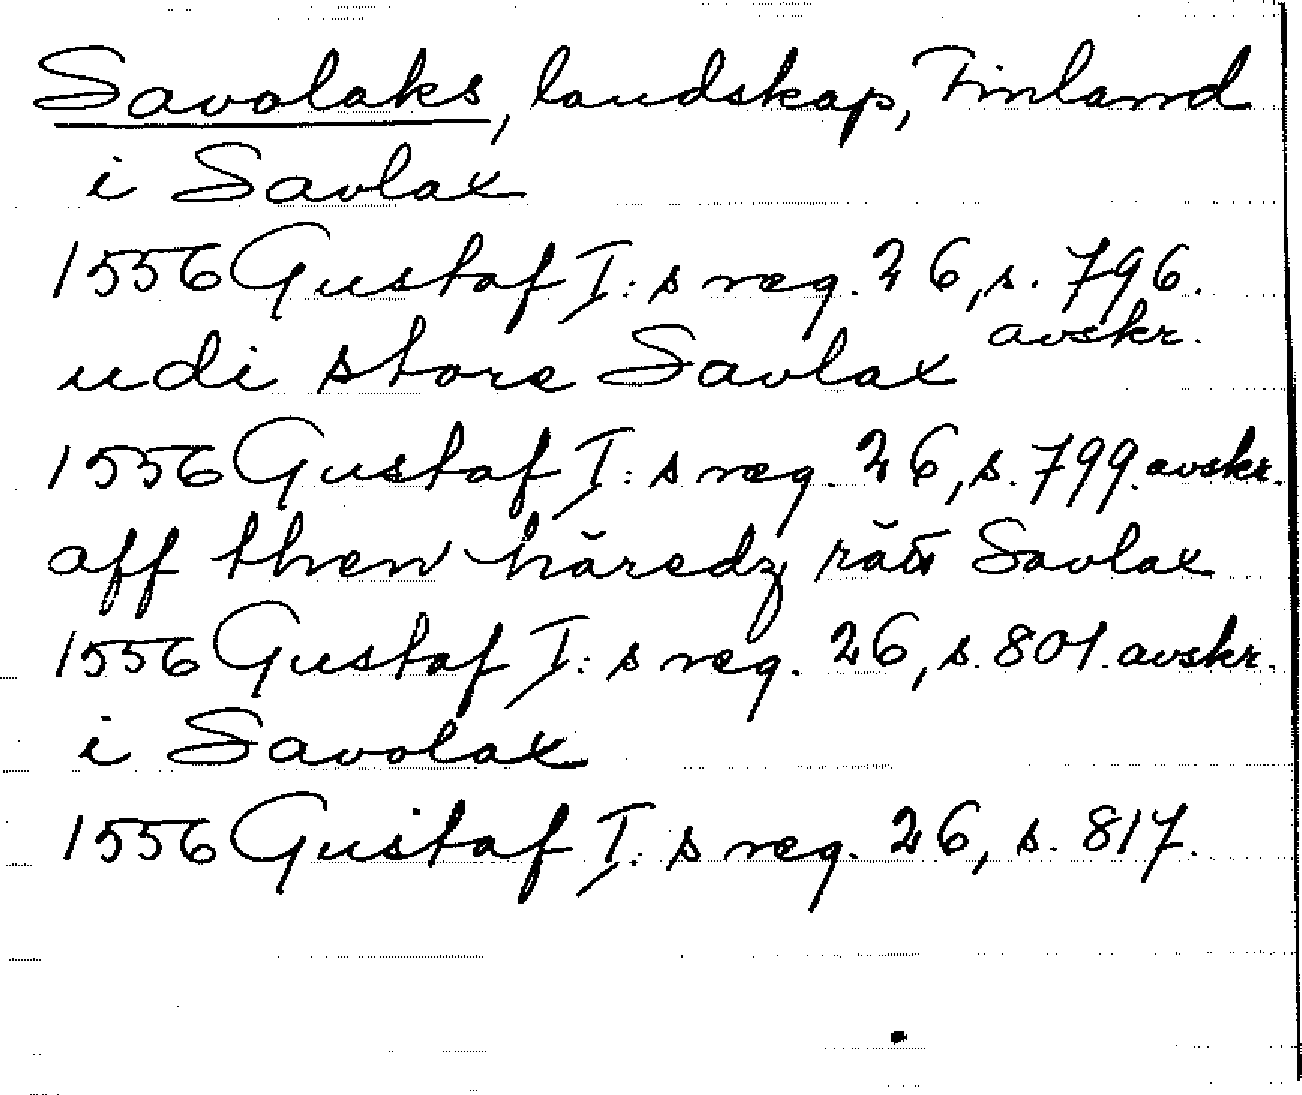 Savolaks, landskap, Finland
i Savlax
1556 Gustaf I:s reg. 26, s. 796.
avskr.
udi store Savlax
1556 Gustaf I:s reg. 26, s. 799. avskr.
aff then häredz rätt Savlax
1556 Gustaf I:s reg. 26, s. 801. avskr.
i Savolax
1556 Gustaf I:s reg. 26, s. 817.